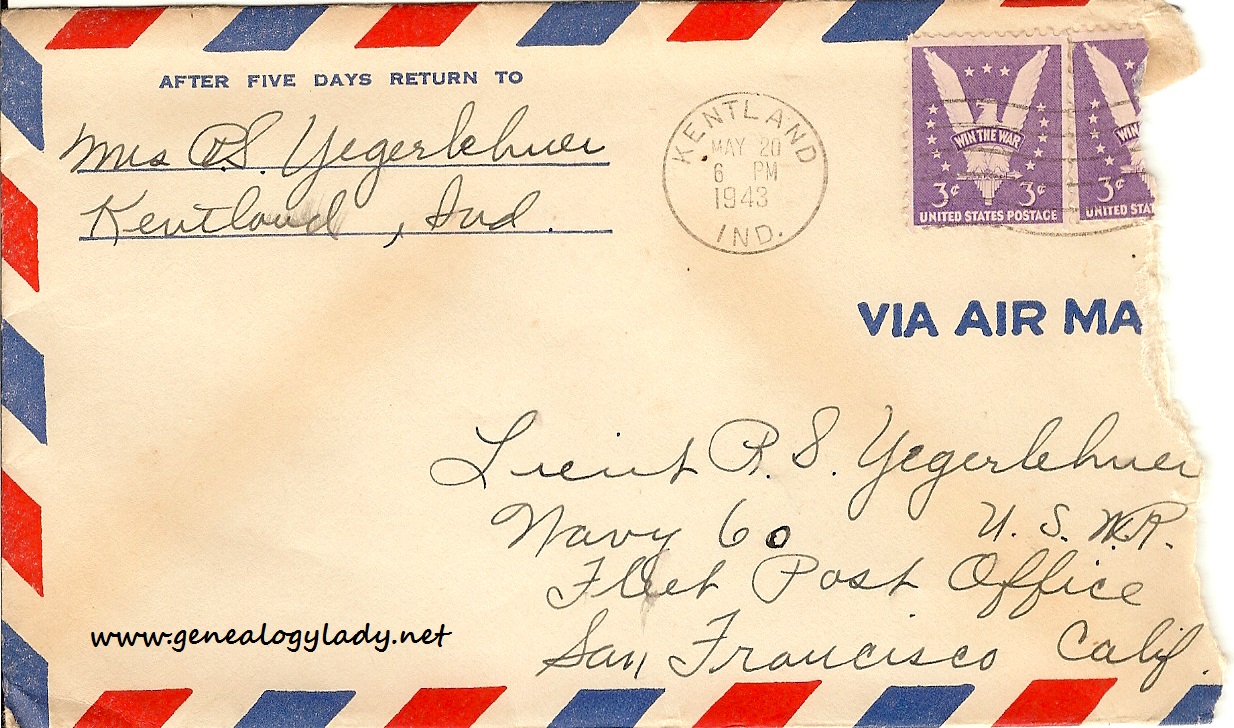 AFTER FIVE DAYS RETURN TO
Mrs R.S. Yegerlehner
Kentland, Ind.
KENTLAND
MAY 20
6 PM
1943
IND.
WIN THE WAR
3¢ 3¢
UNITED STATES POSTAGE
WIN
3¢
UNITED STAT
VIA AIR MA
Lieut R. S. Yegerlehner
Navy 60 U. S. N.R.
Fleet Post Office
San Francisco Calif.
www.genealogylady.net